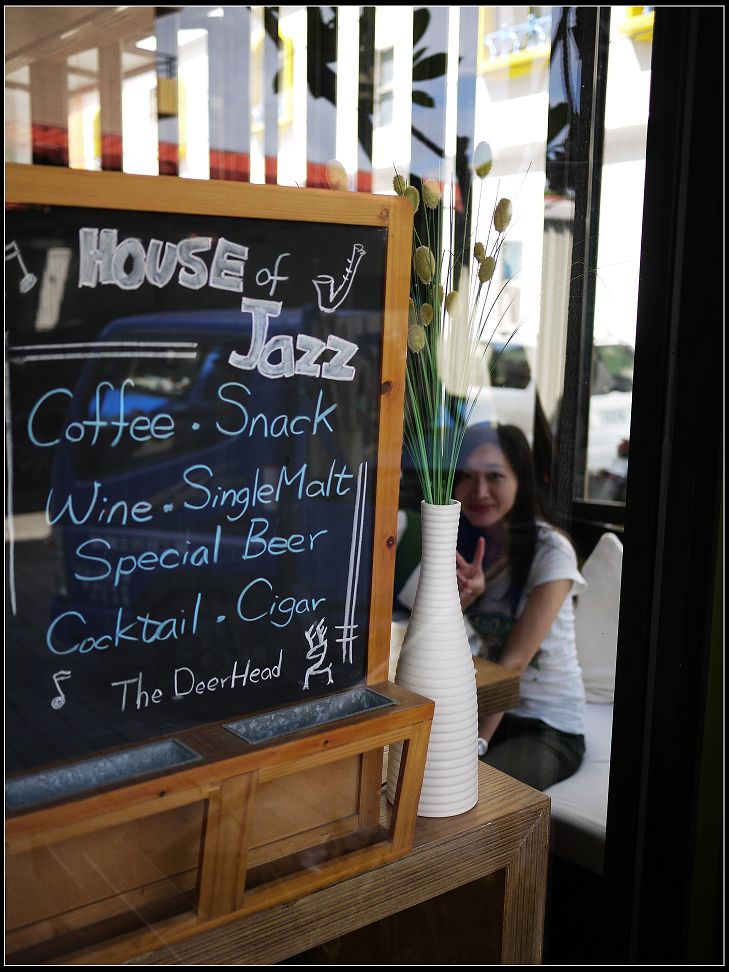 HOUSE of
Jazz
Coffee · Snack
Wine · SingleMalt
Special Beer
Cocktail · Cigar
The DeerHead